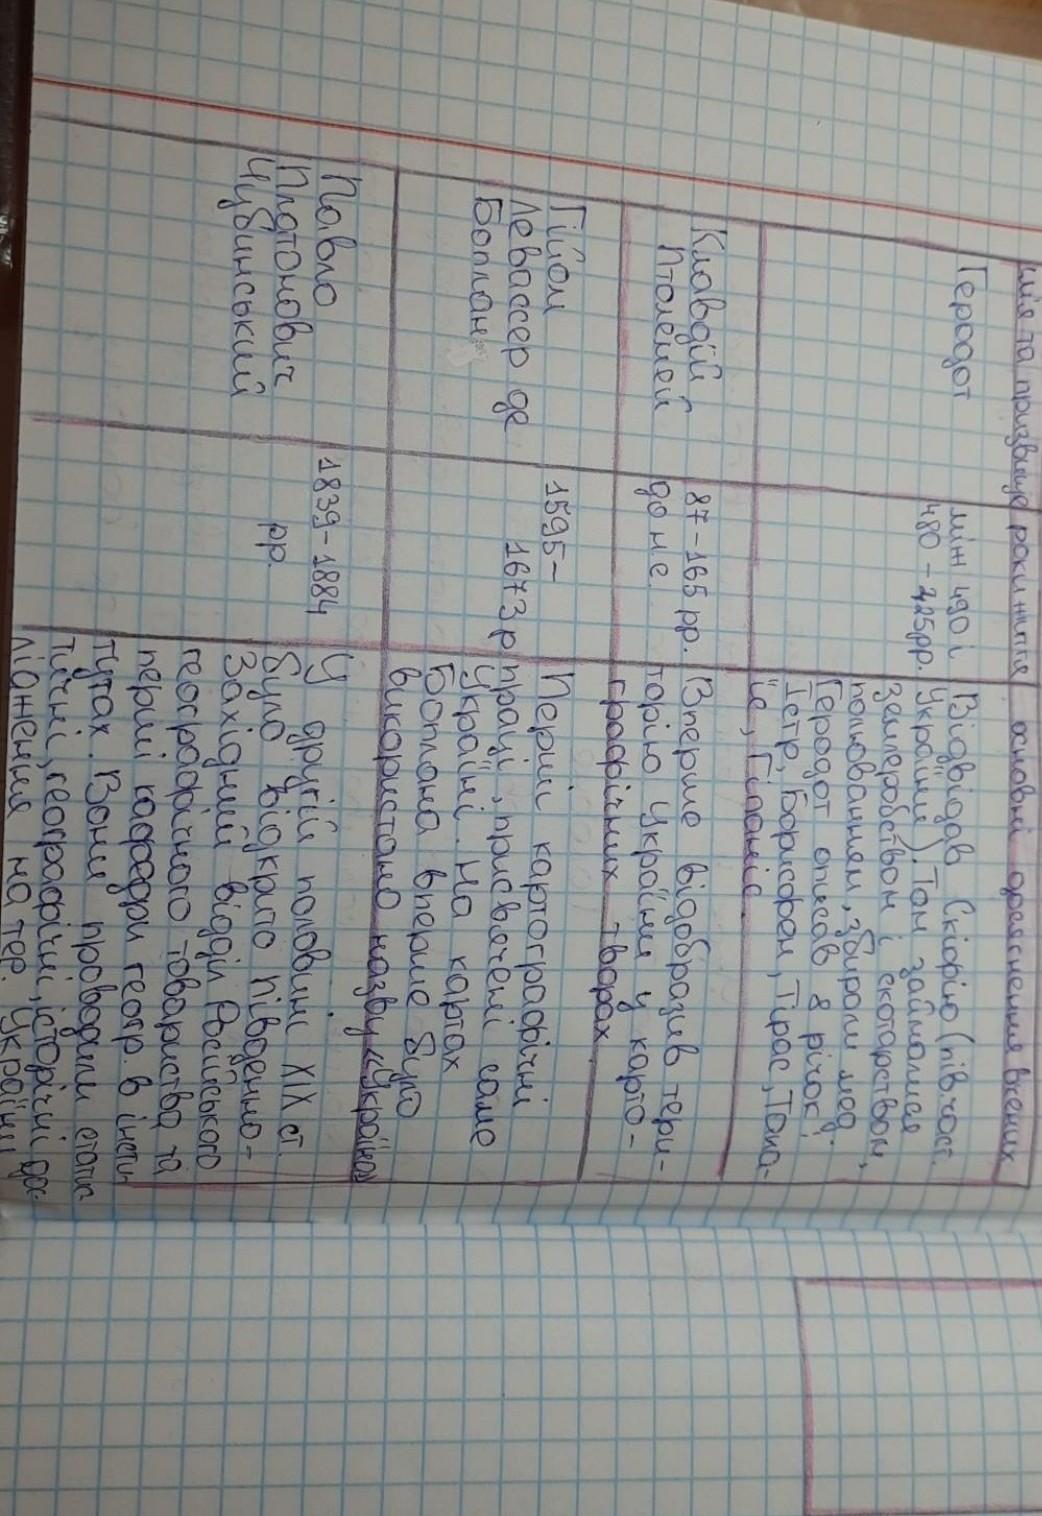 ім'я та призвище роки життя основні досягнення вчених
Геродот
між 490 і
480 - 425рр.
Відвідав Скіфію (півд.част.
України). Там займалися
землеробством і скотарством,
полюванням, збирали мед.
Геродот описав 8 річок:
Істр, Борисфен, Тірас, Тана-
їс, Гіпаніс
Клавдій
Птолемей
87-165 рр.
до н.е
Вперше відобразив тери-
торію України у карто-
графічних творах
Гійом
Левассер де
Боплан
1595-
1673 р
Перші картографічні
праці, присвячені саме
Україні. На картах
Боплана вперше було
використано назву «Україна»
Павло
Платонович
Чубинський
1839-1884
рр.
У другій половині XIX ст.
було відкрито Південно-
Західний відділ Російського
географічного товариства та
перші кафедри геогр в інсти
тутах. Вони проводили етно
тичні, географічні, історічні дос
лідження на тер. України